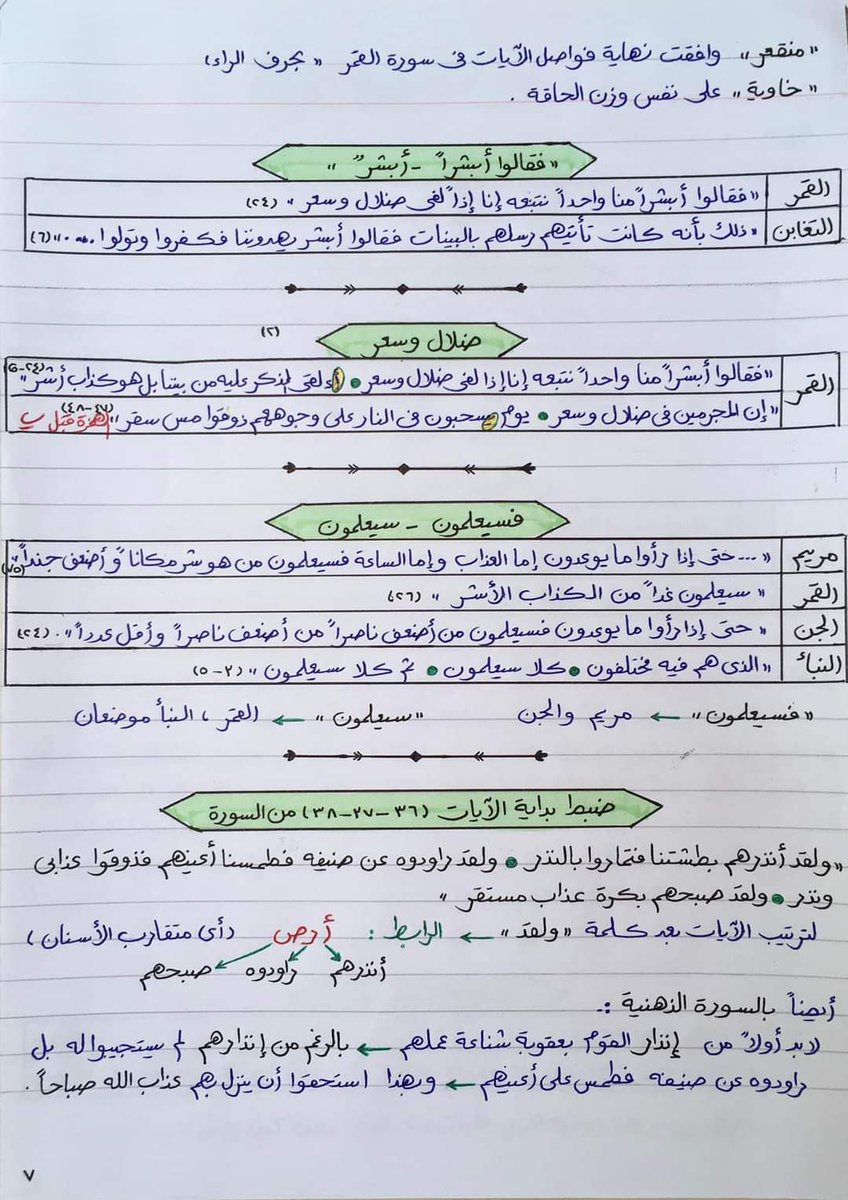 « منقعر » وافقت نهاية فواصل الآيات فى سورة القمر « بحرف الراء)
« خاوية » على نفس وزن الحاقة .
« فقالوا أبشراً - أبشرٌ »
القمر « فقالوا أبشراً منا واحداً نتبعه إنا إذاً لفى ضلال وسعر » (٢٤)
التغابن « ذلك بأنه كانت تأتيهم رسلهم بالبينات فقالوا أبشر يهدوننا فكفروا وتولوا ..... » (٦)
ضلال وسعر (٢)
القمر « فقالوا أبشراً منا واحداً نتبعه إنا إذا لفى ضلال وسعر • أءلقى الذكر عليه من بيننا بل هو كذاب أشر »
« إن المجرمين فى ضلال وسعر • يوم يسحبون فى النار على وجوههم ذوقوا مس سقر » (٤٧-٤٨) الهمزة قبل ي
فسيعلمون - سيعلمون
مريم « ... حتى إذا رأوا ما يوعدون إما العذاب وإما الساعة فسيعلمون من هو شر مكاناً وأضعف جنداً » (٧٥)
القمر « سيعلمون غداً من الكذاب الأشر » (٢٦)
الجن « حتى إذا رأوا ما يوعدون فسيعلمون من أضعف ناصراً من أضعف ناصراً وأقل عدداً » . (٢٤)
النبأ « الذى هم فيه مختلفون • كلا سيعلمون • ثم كلا سيعلمون » (٢-٥)
« فسيعلمون » ← مريم والجن « سيعلمون » ← القمر ، النبأ موضعان
ضبط بداية الآيات (٣٦-٢٧-٣٨) من السورة
« ولقد أنذرهم بطشتنا فتماروا بالنذر • ولقد راودوه عن ضيفه فطمسنا أعينهم فذوقوا عذابى
ونذر • ولقد صبحهم بكرة عذاب مستقر »
لترتيب الآيات بعد كلمة « ولقد » ← الرابط : أرص (أى متقارب الأسنان)
أنذرهم راودوه صبحهم
أيضاً بالسورة الذهنية :.
لابد أولاً من إنذار القوم بعقوبة شناعة عملهم ← بالرغم من إنذارهم لم يستجيبوا له بل
راودوه عن ضيفه فطمس على أعينهم ← وبهذا استحقوا أن ينزل بهم عذاب الله صباحاً .
٧